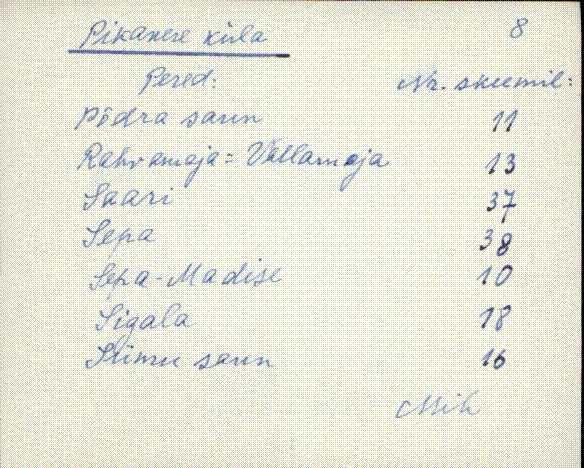 Pikavere küla 8
Pered: Nr. skeemil:
Põdra saun 11
Rahvamaja = Vallamaja 13
Saari 37
Sepa 38
Sepa-Madise 10
Sigala 18
Siimu saun 16